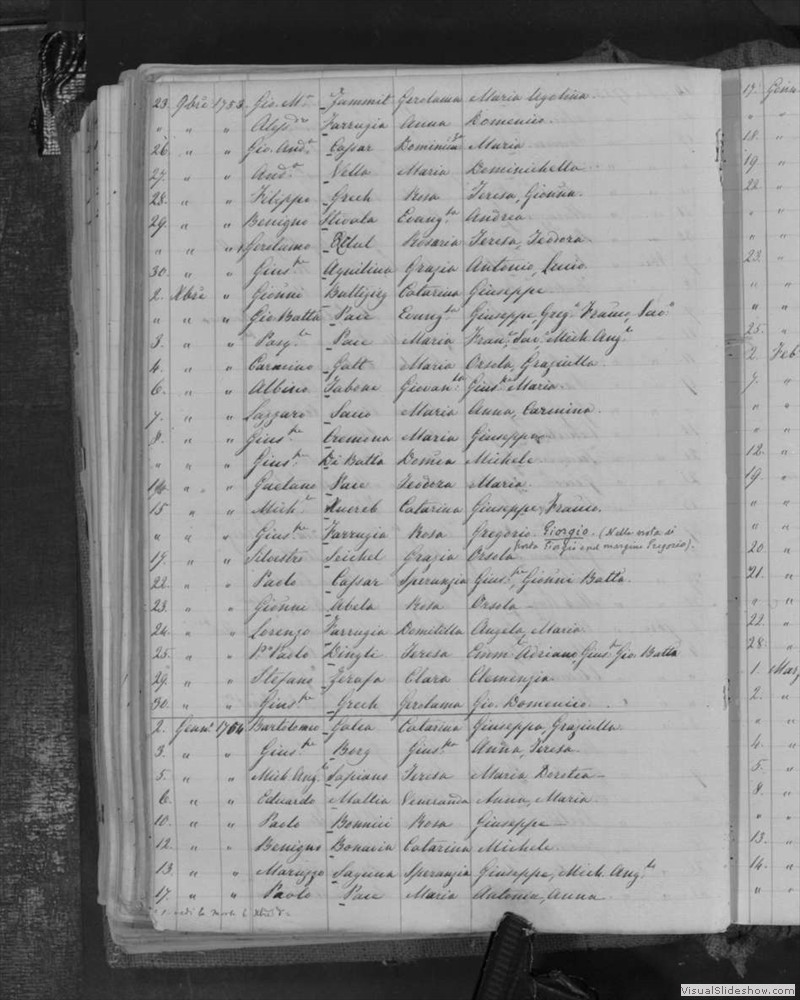 23. 9bre 1753. Gio. Ma Zammit Gerolama Maria Ugolina.
" " " Alessdro Farrugia Anna Domenico.
26. " " Gio. Anda Cassar Dominica Maria
27. " " Anda Vella Maria Dominichella
28. " " Filippo Grech Rosa Teresa, Gionna.
29. " " Benigno Slivala Evangta Andrea
" " " Gerolamo Rosaria Teresa, Teodora
30. " " Giuspe Aquilina Grazia Antonio, Lucio
2. Xbre " Gionni Buttigieg Catarina Giuseppe.
" " " Gio Batta Pace Evangta Giuseppe, Grega Franco, Savo
3. " " Pasqle Pace Maria Franco Savo Mich. Anglo
4. " " Carmino Gatt Maria Orsola, Graziulla
6. " " Albino Tabone Giovanna Giuspa Maria.
7. " " Lazzaro Sacco Maria Anna, Carmina.
8. " " Giuspe Cremona Maria Giuseppe
" " " Giuspe Di Batta Domca Michele.
14 " " Gaetano Pace Teodora Maria.
15 " " Michle Xuereb Catarina Giuseppe, Franco.
" " " Giuspe Farrugia Rosa Gregorio Giorgio. (Nella nota si
17. " " Silvestro Seichel Grazia Orsola porta Giorgio e nel margine Gregorio).
22. " " Paolo Cassar Speranzia Giuspe, Gionni Batta.
23. " " Gionni Abela Rosa Orsola –
24. " " Lorenzo Farrugia Domitilla Angela, Maria
25. " " Paolo Dingli Teresa Emmle Adriano, Giuspe Gio. Batta
29. " " Stefano Zerafa Clara Clemenzia.
30. " " Giuspe Grech Gerolama Gio. Domenico.
2. Gianro 1754. Bartolomeo Galea Catarina Giuseppa, Graziulla
3. " " Giuspe Borg Giuspa Anna, Teresa.
5. " " Mich. Anglo Sapiano Teresa Maria Dorotea –
6. " " Eduardo Mallia Veneranda Anna, Maria
10. " " Paolo Bonnici Rosa Giuseppe –
12. " " Benigno Bonavia Catarina Michele.
13. " " Maruzzo Laguna Speranzia Giuseppe, Mich. Anglo
17. " " Paolo Pace Maria Antonia, Anna
17. Gian
"
18. "
19 "
22. "
"
"
23. "
"
"
25. "
2. Feb
7. "
"
"
12. "
19. "
"
"
20. "
21. "
"
22. "
28. "
1. Marz
2. "
"
4. "
5. "
8. "
"
13. "
14. "
"
VisualSlideshow.com